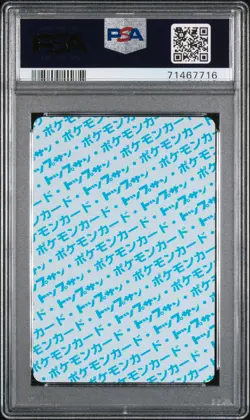 PSA
PSA
71467716
ポケモンカード
トップサン・ポケモンカード
ポケモンカード・トップサン
トップサン・ポケモンカード・
ポケモンカード・トップサン・
トップサン・ポケモンカード・
ポケモンカード・トップサン・
トップサン・ポケモンカード
ポケモンカード・トップサン
ポケモンカード